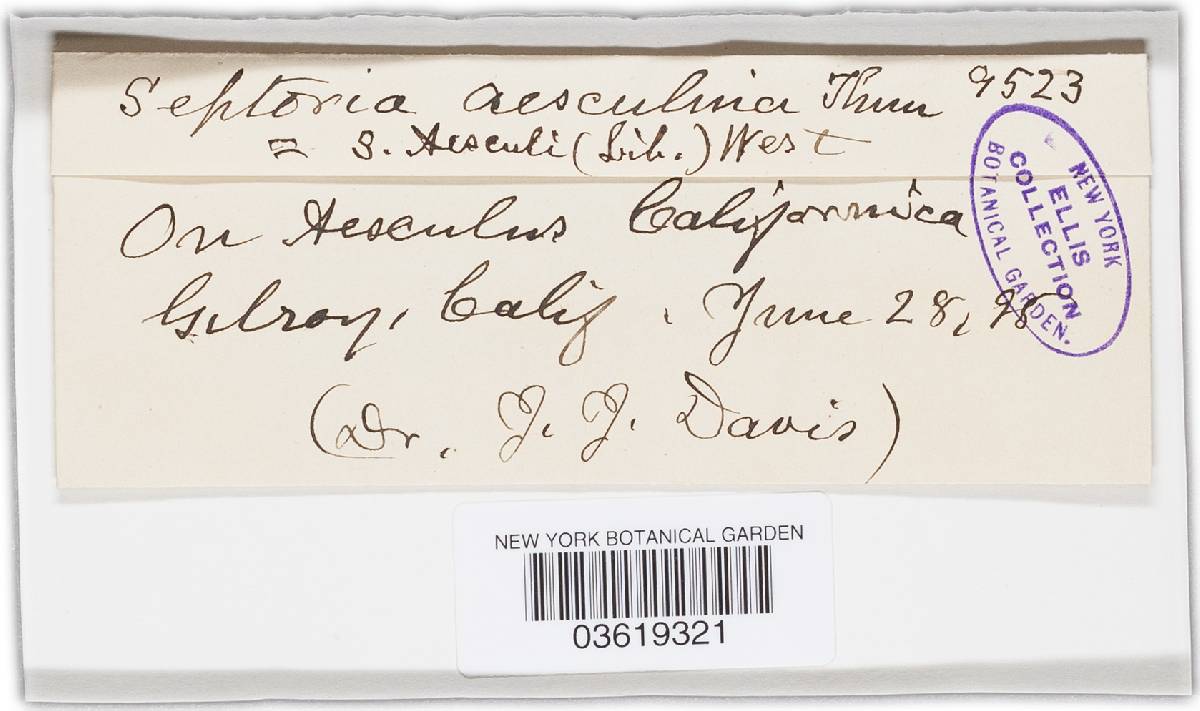 Septoria aesculina Thum 9523
= S. Aesculi (Lib.) West
On Aesculus Californica
Gilroy, Calif. June 28, 98
(Dr. J. J. Davis)
NEW YORK
BOTANICAL GARDEN.
ELLIS
COLLECTION
NEW YORK BOTANICAL GARDEN
03619321